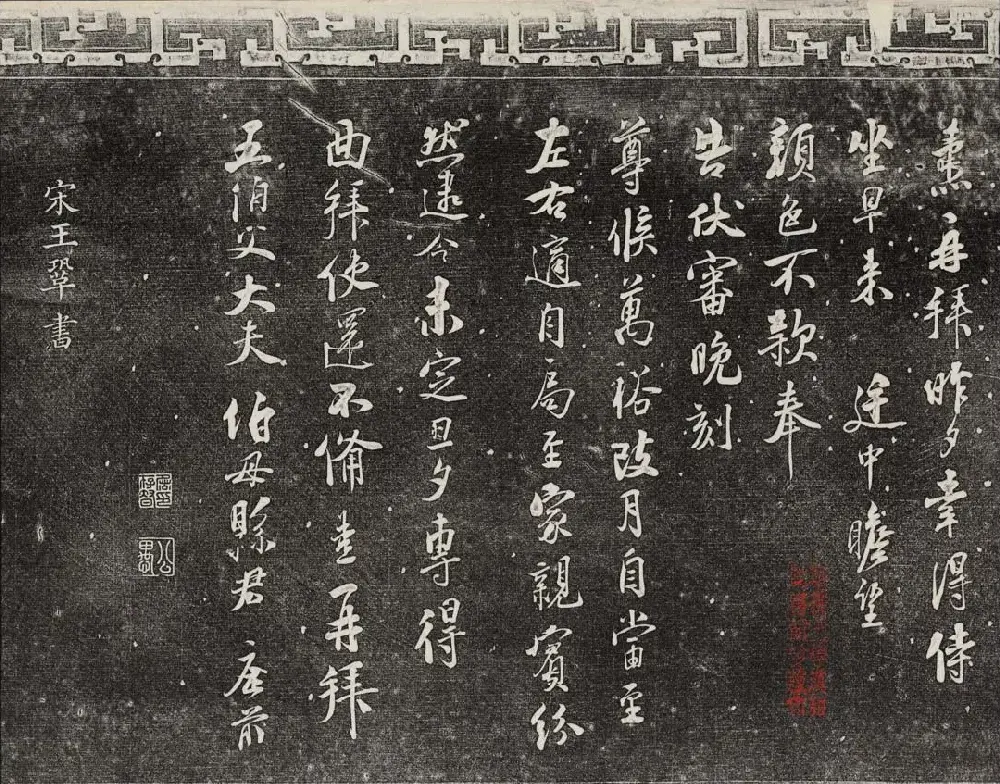 再拜昨夕幸得侍
坐早来 途中瞻望
顏色不款奉
告伏審晚刻
尊候萬裕改月自當至
左右適自局至家親賓紛
然遽今未定旦夕專得
面拜使還不備 再拜
五伯父大夫 伯母縣君 座前
宋王鞏書